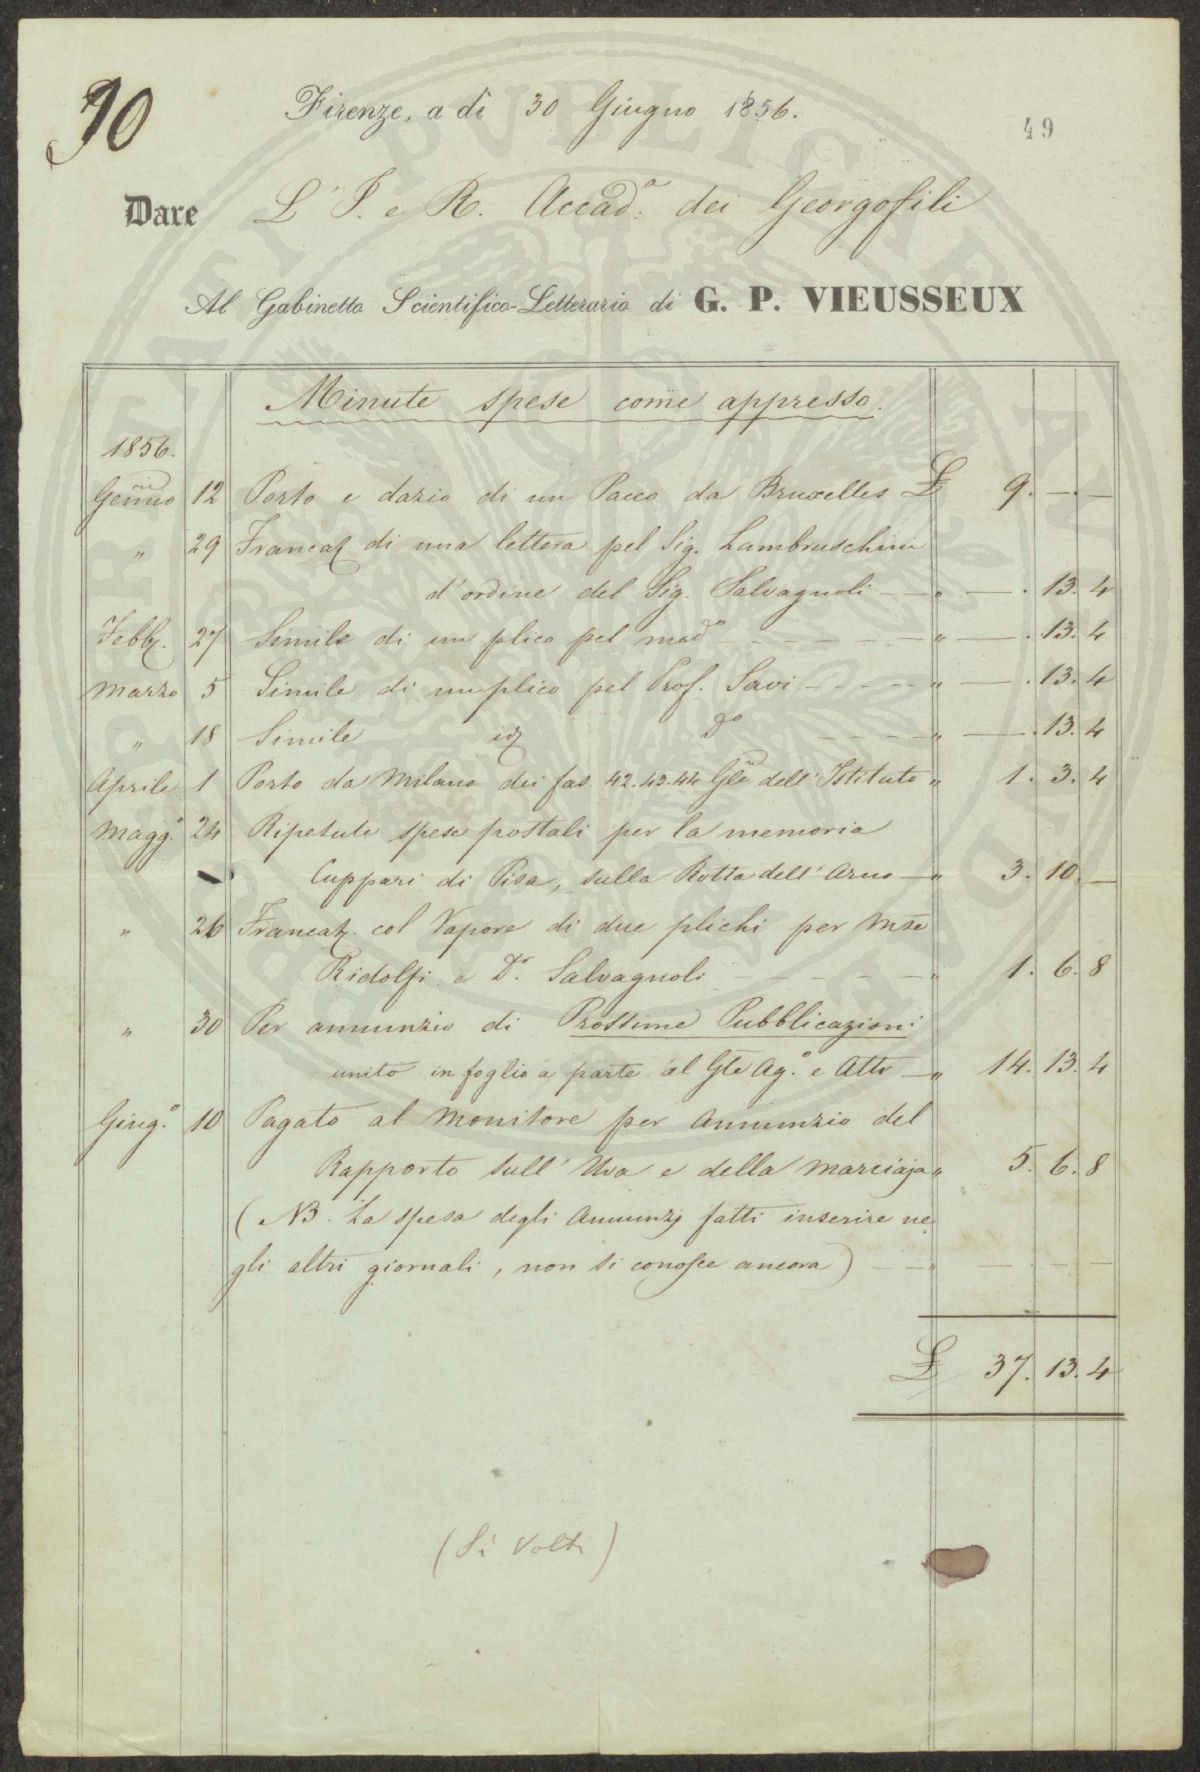 90
Firenze, a dì 30 Giugno 1856.
49
Dare L' I. e R. Accad.a dei Georgofili
Al Gabinetto Scientifico-Letterario di G. P. VIEUSSEUX
Minute spese come appresso.
1856.
12 Porto e dazio di un Pacco da Bruxelles £ 9. — —
" 29 Francat. di una lettera pel Sig. Lambruschini
d'ordine del Sig. Salvagnoli " — . 13. 4
Febb. 27 Simile di un plico pel med.o " — . 13. 4
Marzo 5 Simile di un plico pel Prof. Savi " — . 13. 4
" 18 Simile id. do " — . 13. 4
Aprile 1 Porto da Milano dei fas. 42. 43. 44 Gle dell' Istituto " 1. 3. 4
Magg.o 24 Ripetute spese postali per la memoria
Cuppari di Pisa, sulla Rotta dell' Arno " 3. 10. —
" 26 Francat. col Vapore di due plichi per Mse
Ridolfi e Dr. Salvagnoli " 1. 6. 8
" 30 Per annunzio di Prossime Pubblicazioni
unito in foglio a parte al Gle Ag.o e Atto " 14. 13. 4
Giug.o 10 Pagato al Monitore per Annunzio del
Rapporto sull' Uva e della marciaja " 5. 6. 8
(NB. La spesa degli Annunzj fatti inserire ne
gli altri giornali, non si conosce ancora) — " — — —
£ 37. 13. 4
(Si volti)